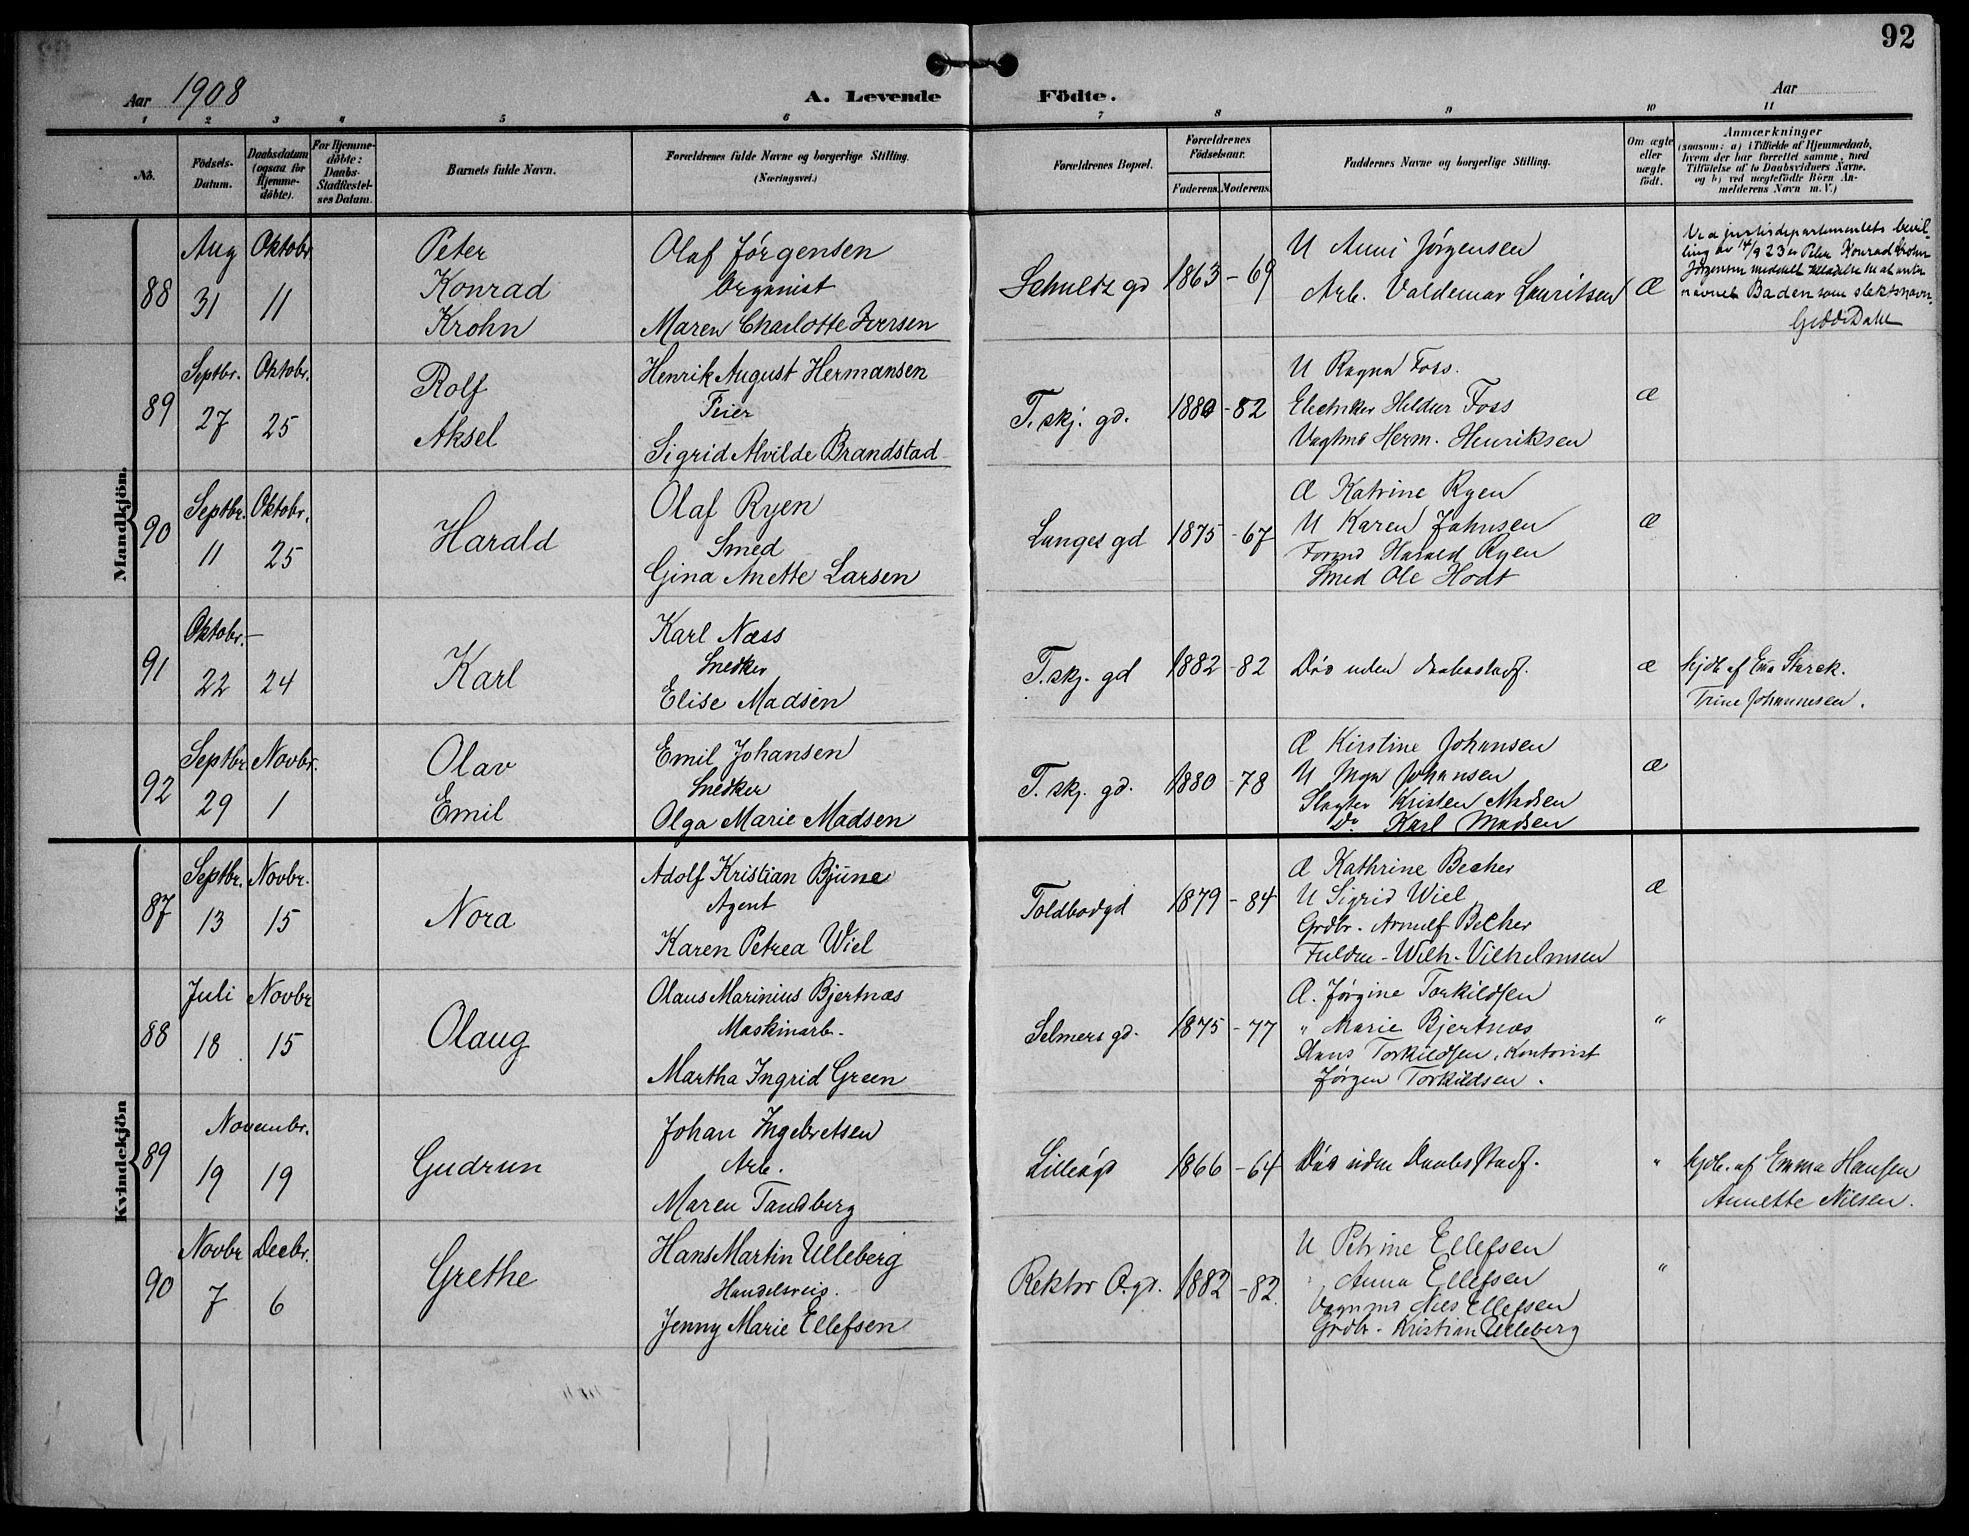 92
Aar 1908
A. Levende Födte.
Aar
1 2 3 4 5 6 7 8 9 10 11
No.
Födsels-Datum.
Daabsdatum (ogsaa for Hjemme-döbte).
For Hjemme-döbte: Daabs-Stadfæstel-ses Datum.
Barnets fulde Navn.
Forældrenes fulde Navne og borgerlige Stilling. (Næringsvei.)
Forældrenes Bopæl.
Forældrenes Födselsaar.
Faderens. Moderens.
Faddernes Navne og borgerlige Stilling.
Om ægte eller uægte födt.
Anmærkninger
(saasom: a) i Tilfælde af Hjemmedaab, hvem der har forrettet samme, med Tilföielse af to Daabsvidners Navne, og b) ved uægtefödte Börn An-melderens Navn m. V.)
Mandkjön.
88
Aug 31
Oktobr. 11
Peter
Konrad
Krohn
Olaf Jørgensen
Organist
Maren Charlotte Iversen
Schultz gd
1863 - 69
U Anni Jørgensen
Arb. Valdemar Lauritsen
Æ
Ved justisdepartementets bevil-
ling av 14/9 23 er Peter Konrad Krohn
Jørgensen meddelt tilladelse til at anta
navnet Baden som slektsnavn.
89
Septbr. 27
Oktobr. 25
Rolf
Aksel
Henrik August Hermansen
Feier
Sigrid Alvilde Brandstad
T. skj. gd.
1880 - 82
U Ragna Foss.
Electriker Hildur Foss
Vagtmd Herm. Henriksen
Æ
90
Septbr. 11
Oktobr. 25
Harald
Olaf Ryen
Smed
Gina Anette Larsen
Langes gd
1875 - 67
Æ Katrine Ryen
U Karen Johnsen
Formd Harald Ryen
Smed Ole Hodt
Æ
91
Oktobr. -
22 24
Karl
Karl Næss
Snedker
Elise Madsen
T. skj. gd
1882 - 82
Død uden Daabsstadf.
Æ
Hjdb. af Eva Starck.
Trine Johannesen.
92
Septbr 29
Novbr. 1
Olav
Emil
Emil Johansen
Snedker
Olga Marie Madsen
T. skj. gd.
1880 - 78
Æ Kirstine Johansen
U Inga Johansen
Slagter Kristen Madsen
Do Karl Madsen
Æ
Kvindekjön
87
Septbr. 13
Novbr. 15
Nora
Adolf Kristian Bjune
Agent
Karen Petrea Wiel
Toldbodgd
1879 - 84
Æ Kathrine Becher
U Sigrid Wiel
Grdbr. Arnulf Becher
Fuldm. Wilh. Vilhelmsen
Æ
88
Juli 18
Novbr 15
Olaug
Olaus Marinius Bjertnæs
Maskinarb.
Martha Ingrid Green
Selmers gd.
1875 - 77
Æ. Jørgine Torkildsen
" Marie Bjertnæs
Hans Torkildsen, Kontorist
Jørgen Torkildsen.
"
89
Novembr.
19 19
Gudrun
Johan Ingebretsen
Arb.
Maren Tandberg
Lilleøgd
1866 - 64
Død uden Daabsstadf.
"
Hjdb. af Emma Hansen
Annette Nilsen.
90
Novbr 7
Decbr. 6
Grethe
Hans Martin Ulleberg
Handelsreis.
Jenny Marie Ellefsen
Rektor O. gd.
1882 - 82
U Petrine Ellefsen
" Anna Ellefsen
Vognmd Nils Ellefsen
Grdbr. Kristian Ulleberg
"